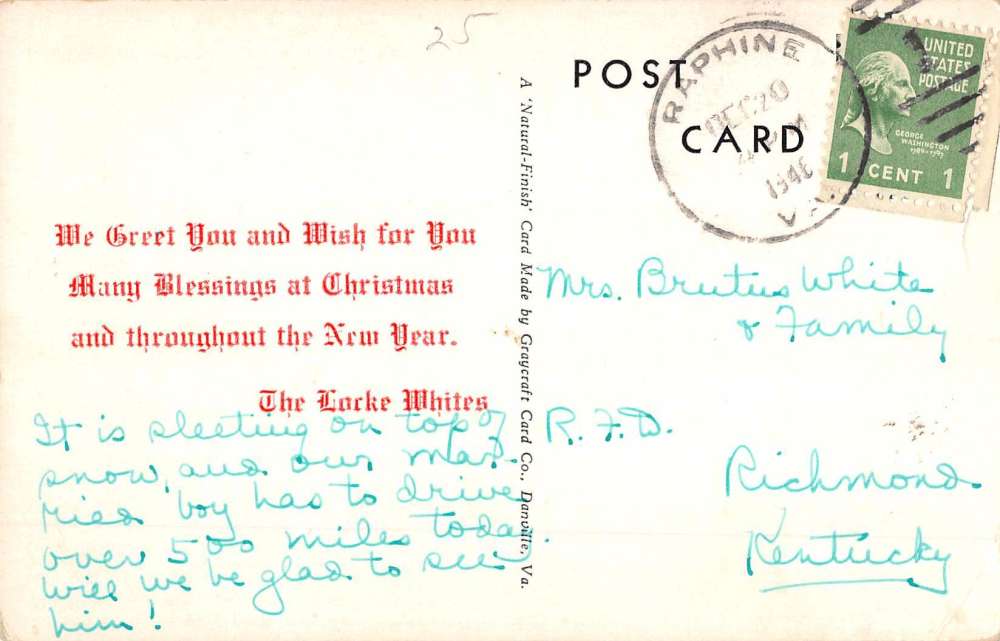 25
POST
CARD
RAPHINE
DEC 20
PM
1946
VA
UNITED
STATES
POSTAGE
GEORGE
WASHINGTON
1789-1797
1 CENT 1
We Greet You and Wish for You
Many Blessings at Christmas
and throughout the New Year.
The Locke Whites
It is sleeting on top of
snow, and our mar-
ried boy has to drive
over 500 miles today.
Will we be glad to see
him!
A 'Natural-Finish' Card Made by Graycraft Card Co., Danville, Va.
Mrs. Brutus White
& Family
R.F.D.
Richmond
Kentucky